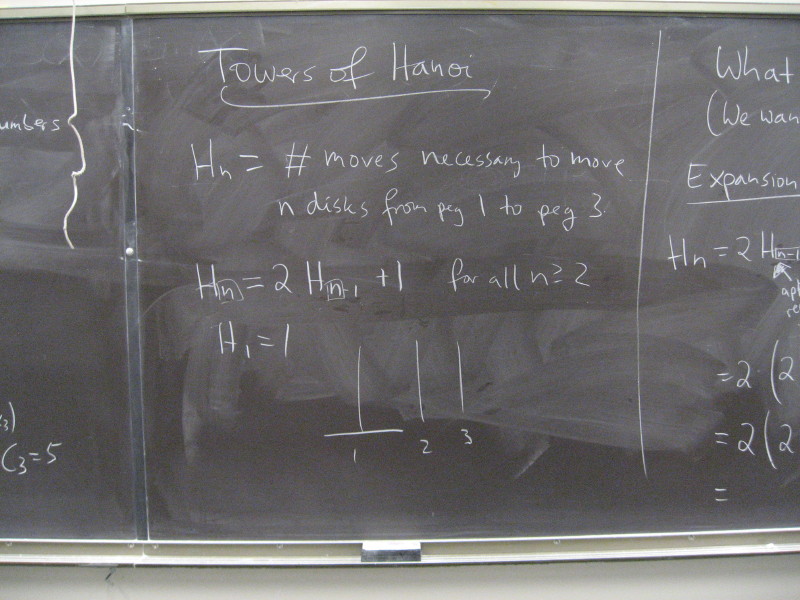 umbers
3)
C3=5
Towers of Hanoi
Hn = # moves necessary to move
n disks from peg 1 to peg 3.
Hn = 2 Hn-1 + 1 for all n ≥ 2
H1 = 1
1 2 3
What
(We wan
Expansion
Hn = 2 Hn-1
= 2 · (2
= 2 (2
=